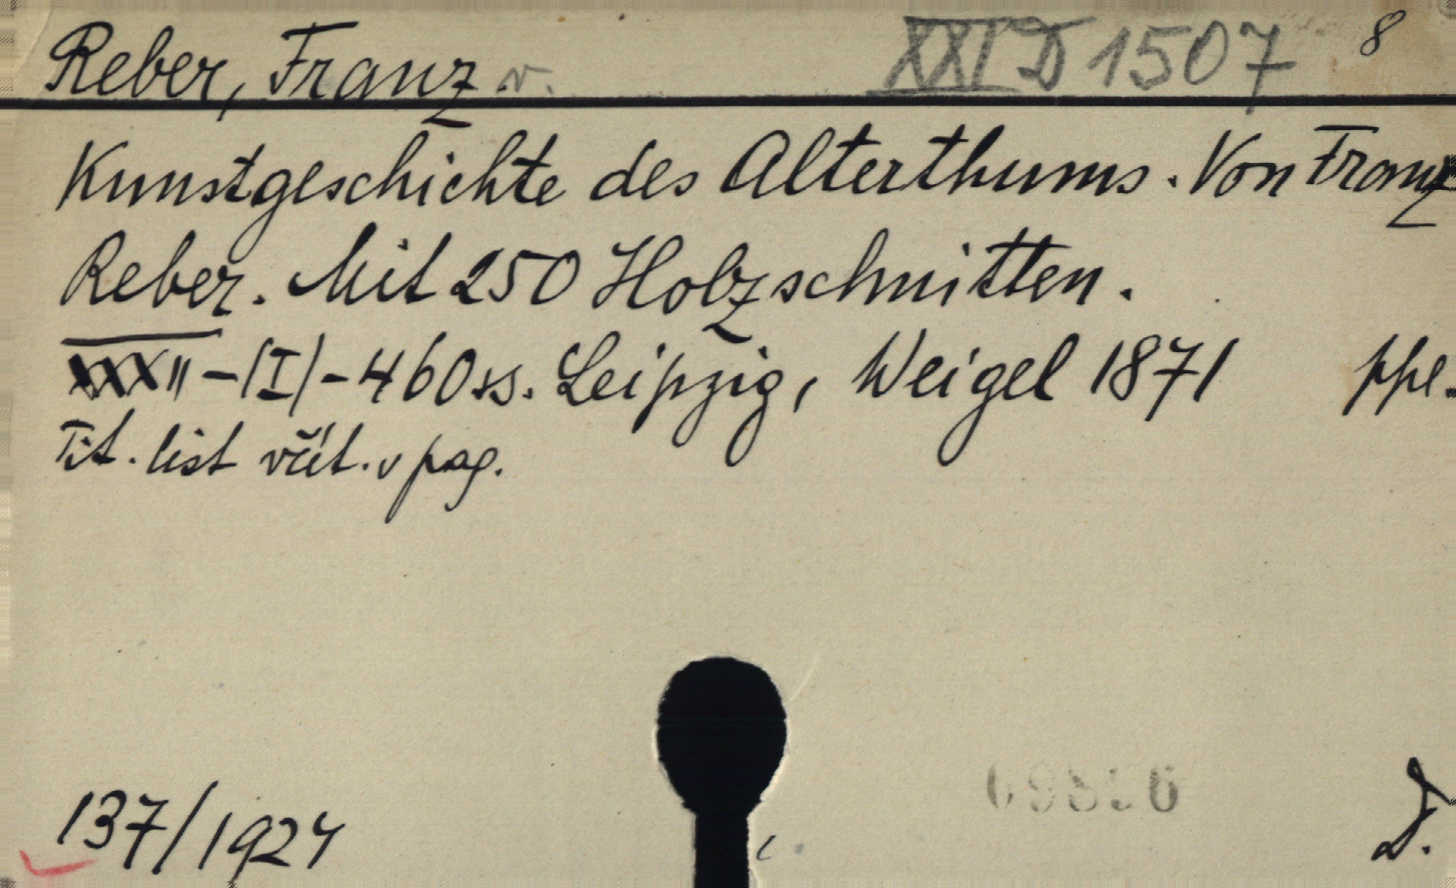 Reber, Franz v. XXI D 1507 8
Kunstgeschichte des Alterthums. Von Franz
Reber. Mit 250 Holzschnitten.
XXXII-(I)-460 ss. Leipzig, Weigel 1871 ppl.
Tit. list včít. v pag.
137/1924